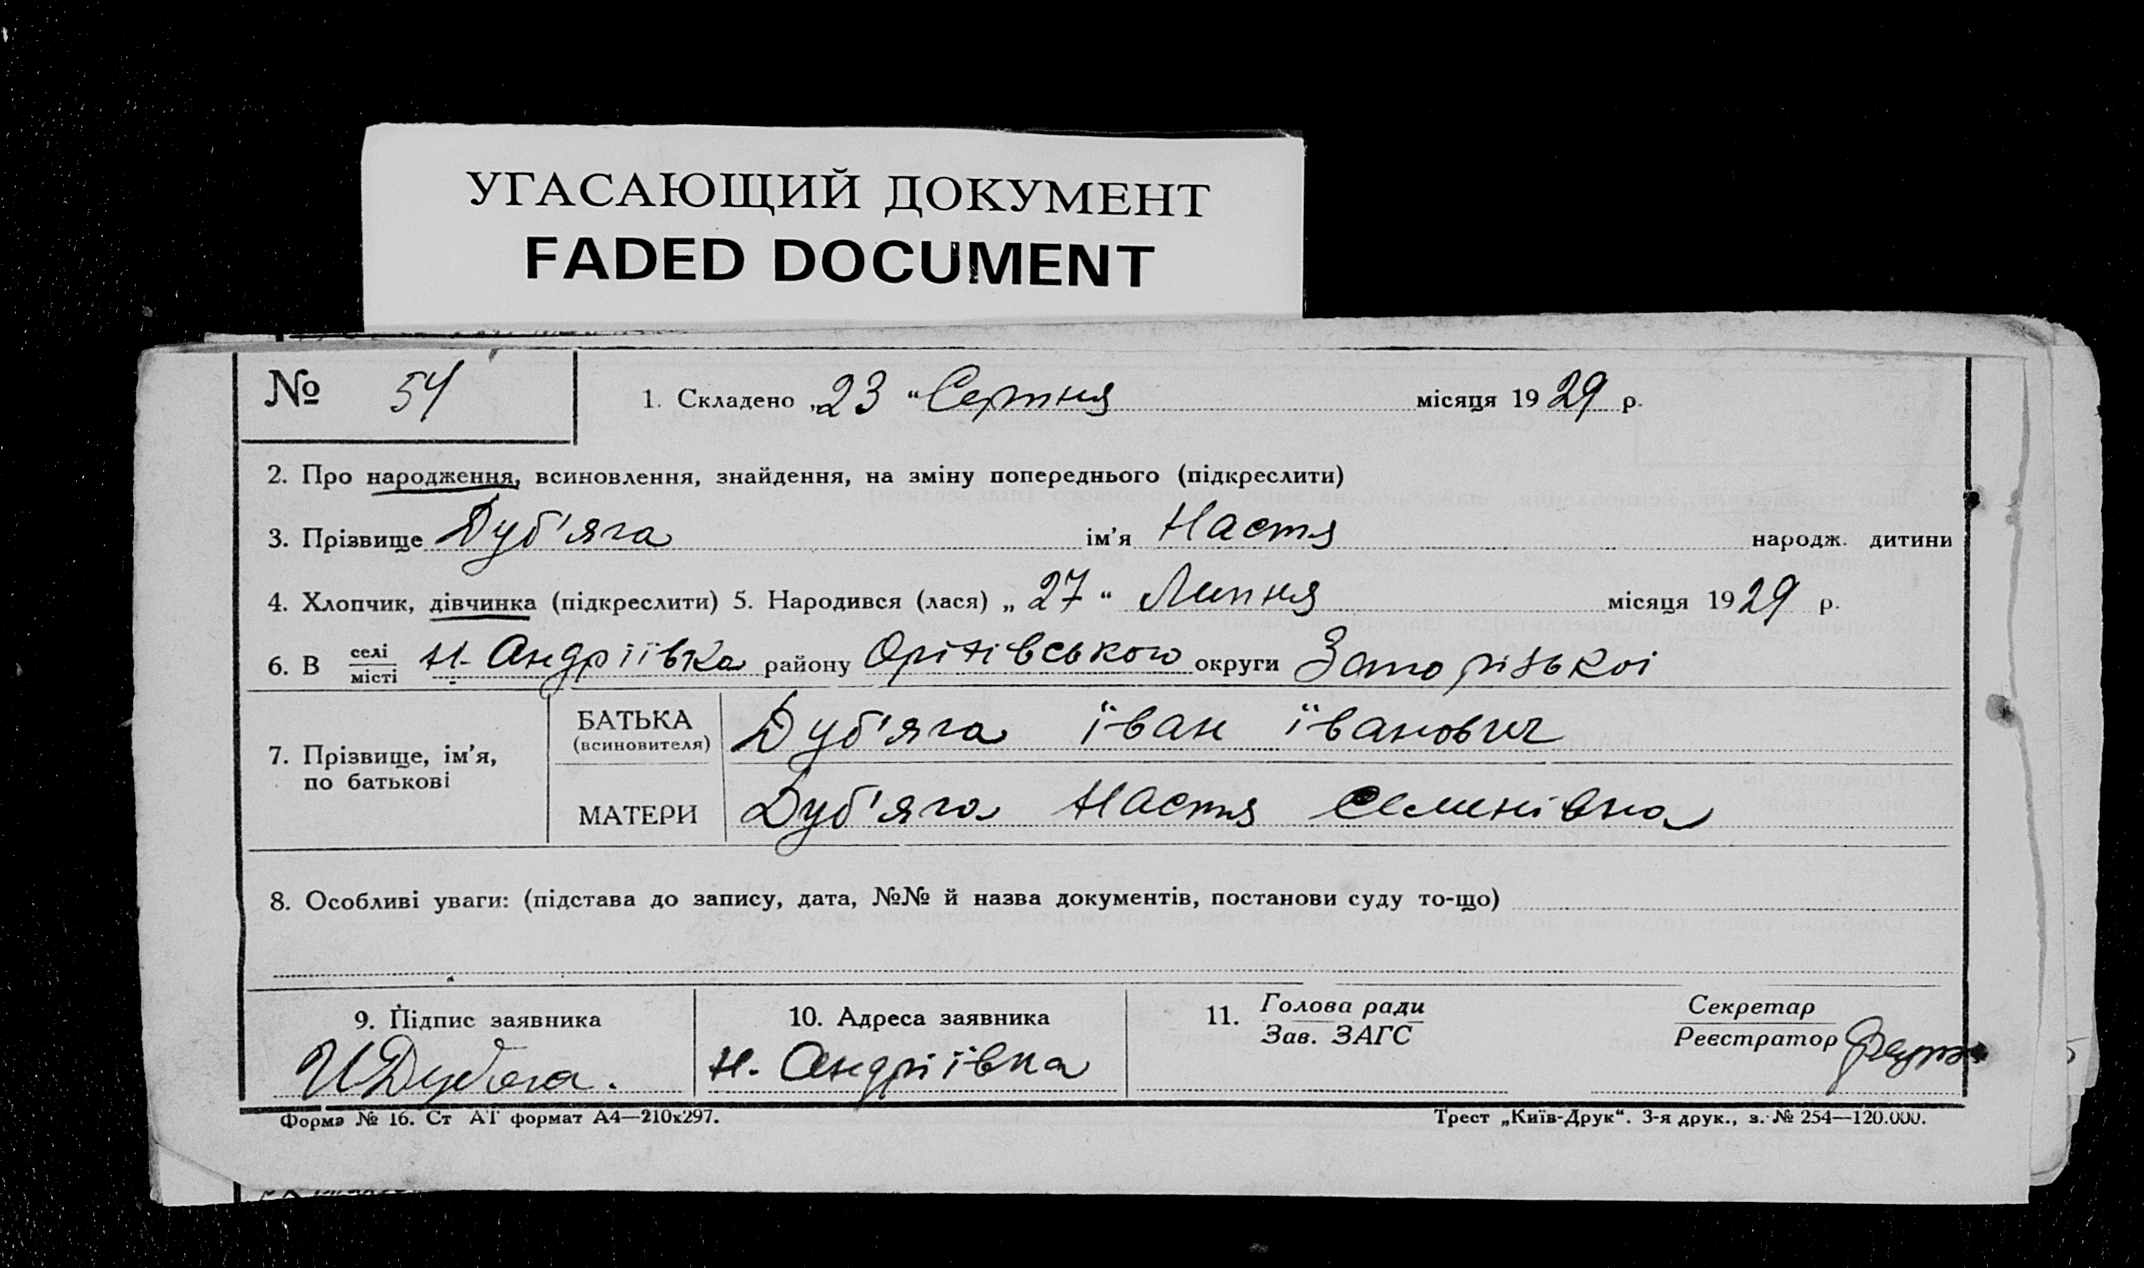 УГАСАЮЩИЙ ДОКУМЕНТ
FADED DOCUMENT
№ 54 1. Складено „23“ Серпня місяця 1929 р.
2. Про народження, всиновлення, знайдення, на зміну попереднього (підкреслити)
3. Прізвище Дуб'яга ім'я Настя народж. дитини
4. Хлопчик, дівчинка (підкреслити) 5. Народився (лася) „27“ Липня місяця 1929 р.
6. В селі місті Н. Андріївка району Оріхівського округи Запорізької
7. Прізвище, ім'я, по батькові
БАТЬКА (всиновителя) Дуб'яга Їван Їванович
МАТЕРИ Дуб'яга Настя Семенівна
8. Особливі уваги: (підстава до запису, дата, №№ й назва документів, постанови суду то-що)
9. Підпис заявника 10. Адреса заявника 11. Голова ради Зав. ЗАГС Секретар Реєстратор
И Дубяга. Н. Андріївка
Форма № 16. Ст АТ формат А4—210х297. Трест „Київ-Друк“. 3-я друк., з. № 254—120.000.